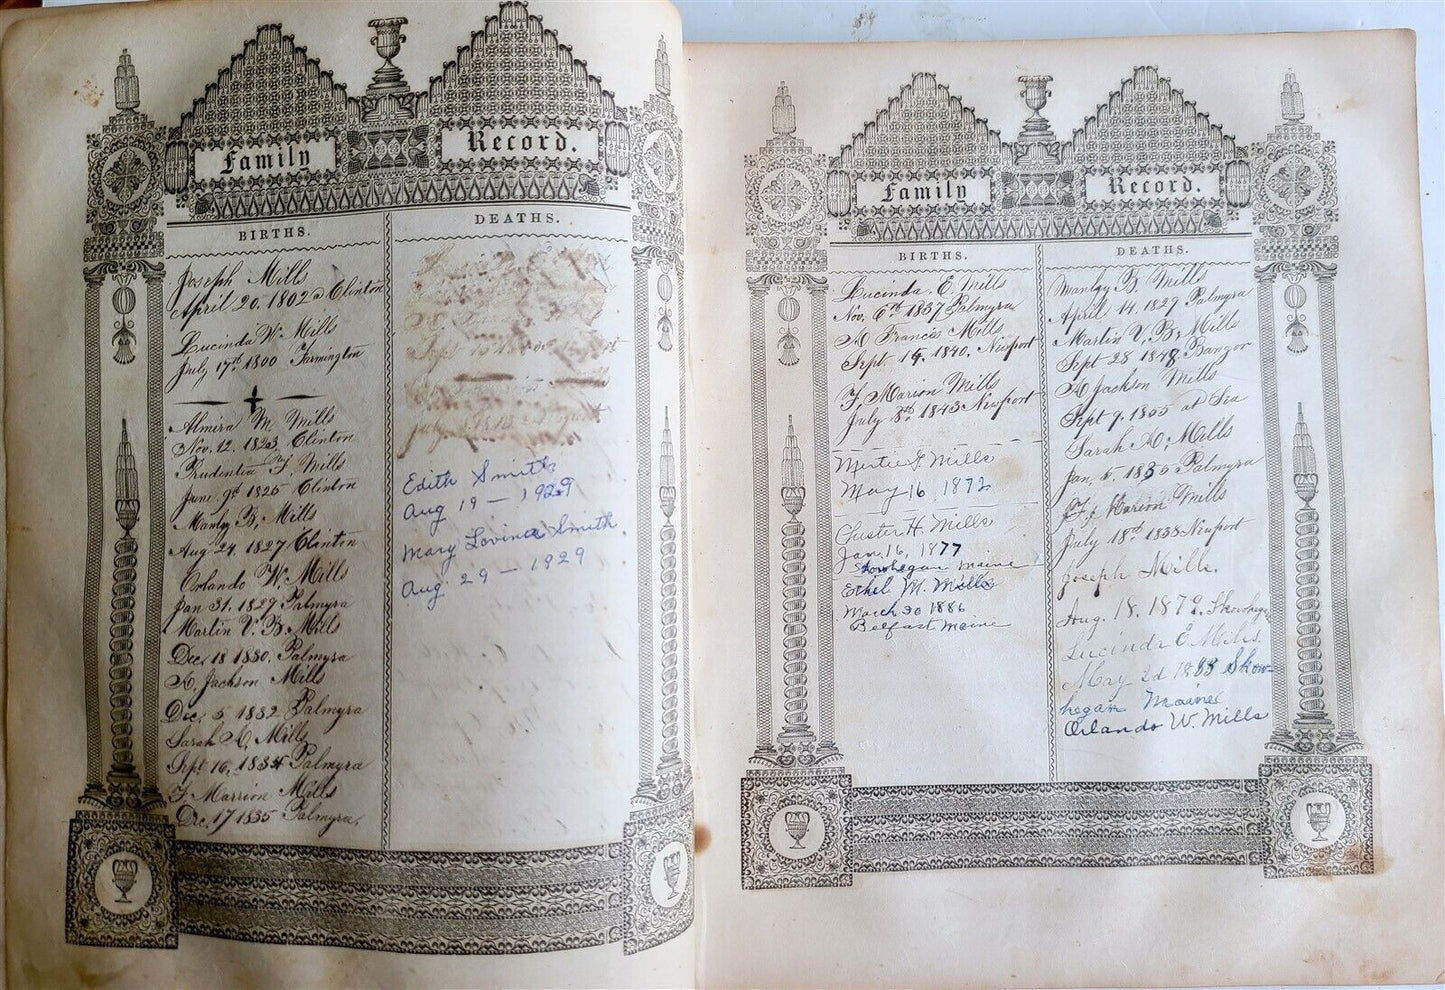 Family Record.
BIRTHS.
Joseph Mills
April 20, 1802 Clinton
Lucinda W. Mills
July 17th 1800 Farmington
Almira M. Mills
Nov. 12. 1823 Clinton
Prudentia F. Mills
June 9th 1825 Clinton
Manly B. Mills
Aug 24. 1827 Clinton
Orlando W. Mills
Jan 31. 1829 Palmyra
Martin V. B. Mills
Dec. 18 1830, Palmyra
A. Jackson Mills
Dec. 5 1832 Palmyra
Sarah A. Mills
Sept 16, 1834 Palmyra
F Marrion Mills
Dec. 17 1835 Palmyra,
DEATHS.
Edith Smith
Aug 19 — 1929
Mary Lovina Smith
Aug 29 — 1929
Family Record.
BIRTHS.
Lucinda E. Mills
Nov, 6th 1837 Palmyra
A Francis Mills
Sept. 14. 1840, Newport
F. Marion Mills
July 8th 1843 Newport
Mertie F. Mills
May 16 1872
Chester H. Mills
Jan 16, 1877
Skowhegan Maine
Ethel M. Mills
March 30 1886
Belfast Maine
DEATHS.
Manly B. Mills
April 14. 1829 Palmyra
Martin V, B, Mills
Sept 28 1848 Bangor
A Jackson Mills
Sept 9, 1855 at Sea
Sarah A, Mills
Jan, 5 1835 Palmyra
F, Marion Mills
July 18th 1838 Newport
Joseph Mills.
Aug. 18. 1879. Skowhegan
Lucinda E Mills
May 2d 1883 Skow-
hegan Maine
Orlando W. Mills